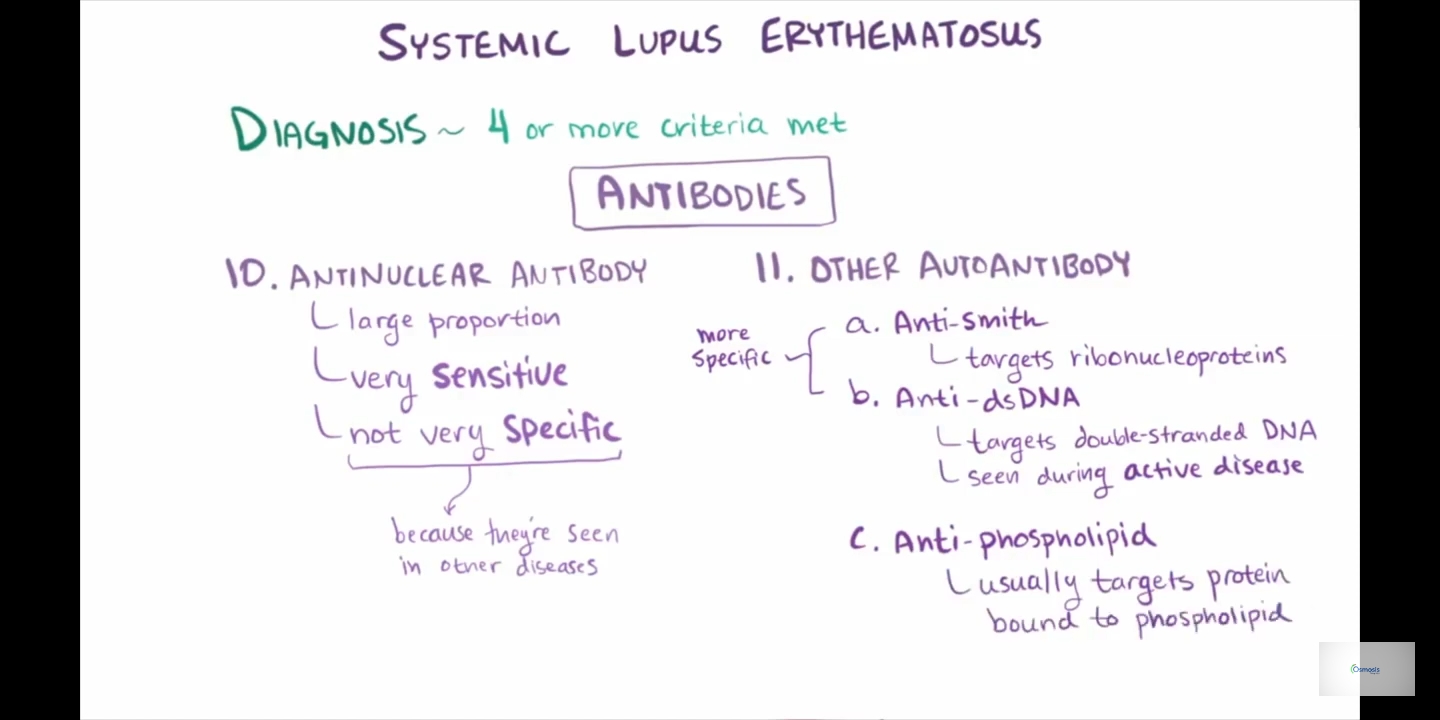 SYSTEMIC LUPUS ERYTHEMATOSUS
DIAGNOSIS ~ 4 or more criteria met
ANTIBODIES
10. ANTINUCLEAR ANTIBODY
large proportion
very sensitive
not very specific
because they're seen
in other diseases
11. OTHER AUTOANTIBODY
more
specific
a. Anti-smith
targets ribonucleoproteins
b. Anti-dsDNA
targets double-stranded DNA
seen during active disease
c. Anti-phospholipid
usually targets protein
bound to phospholipid
Osmosis